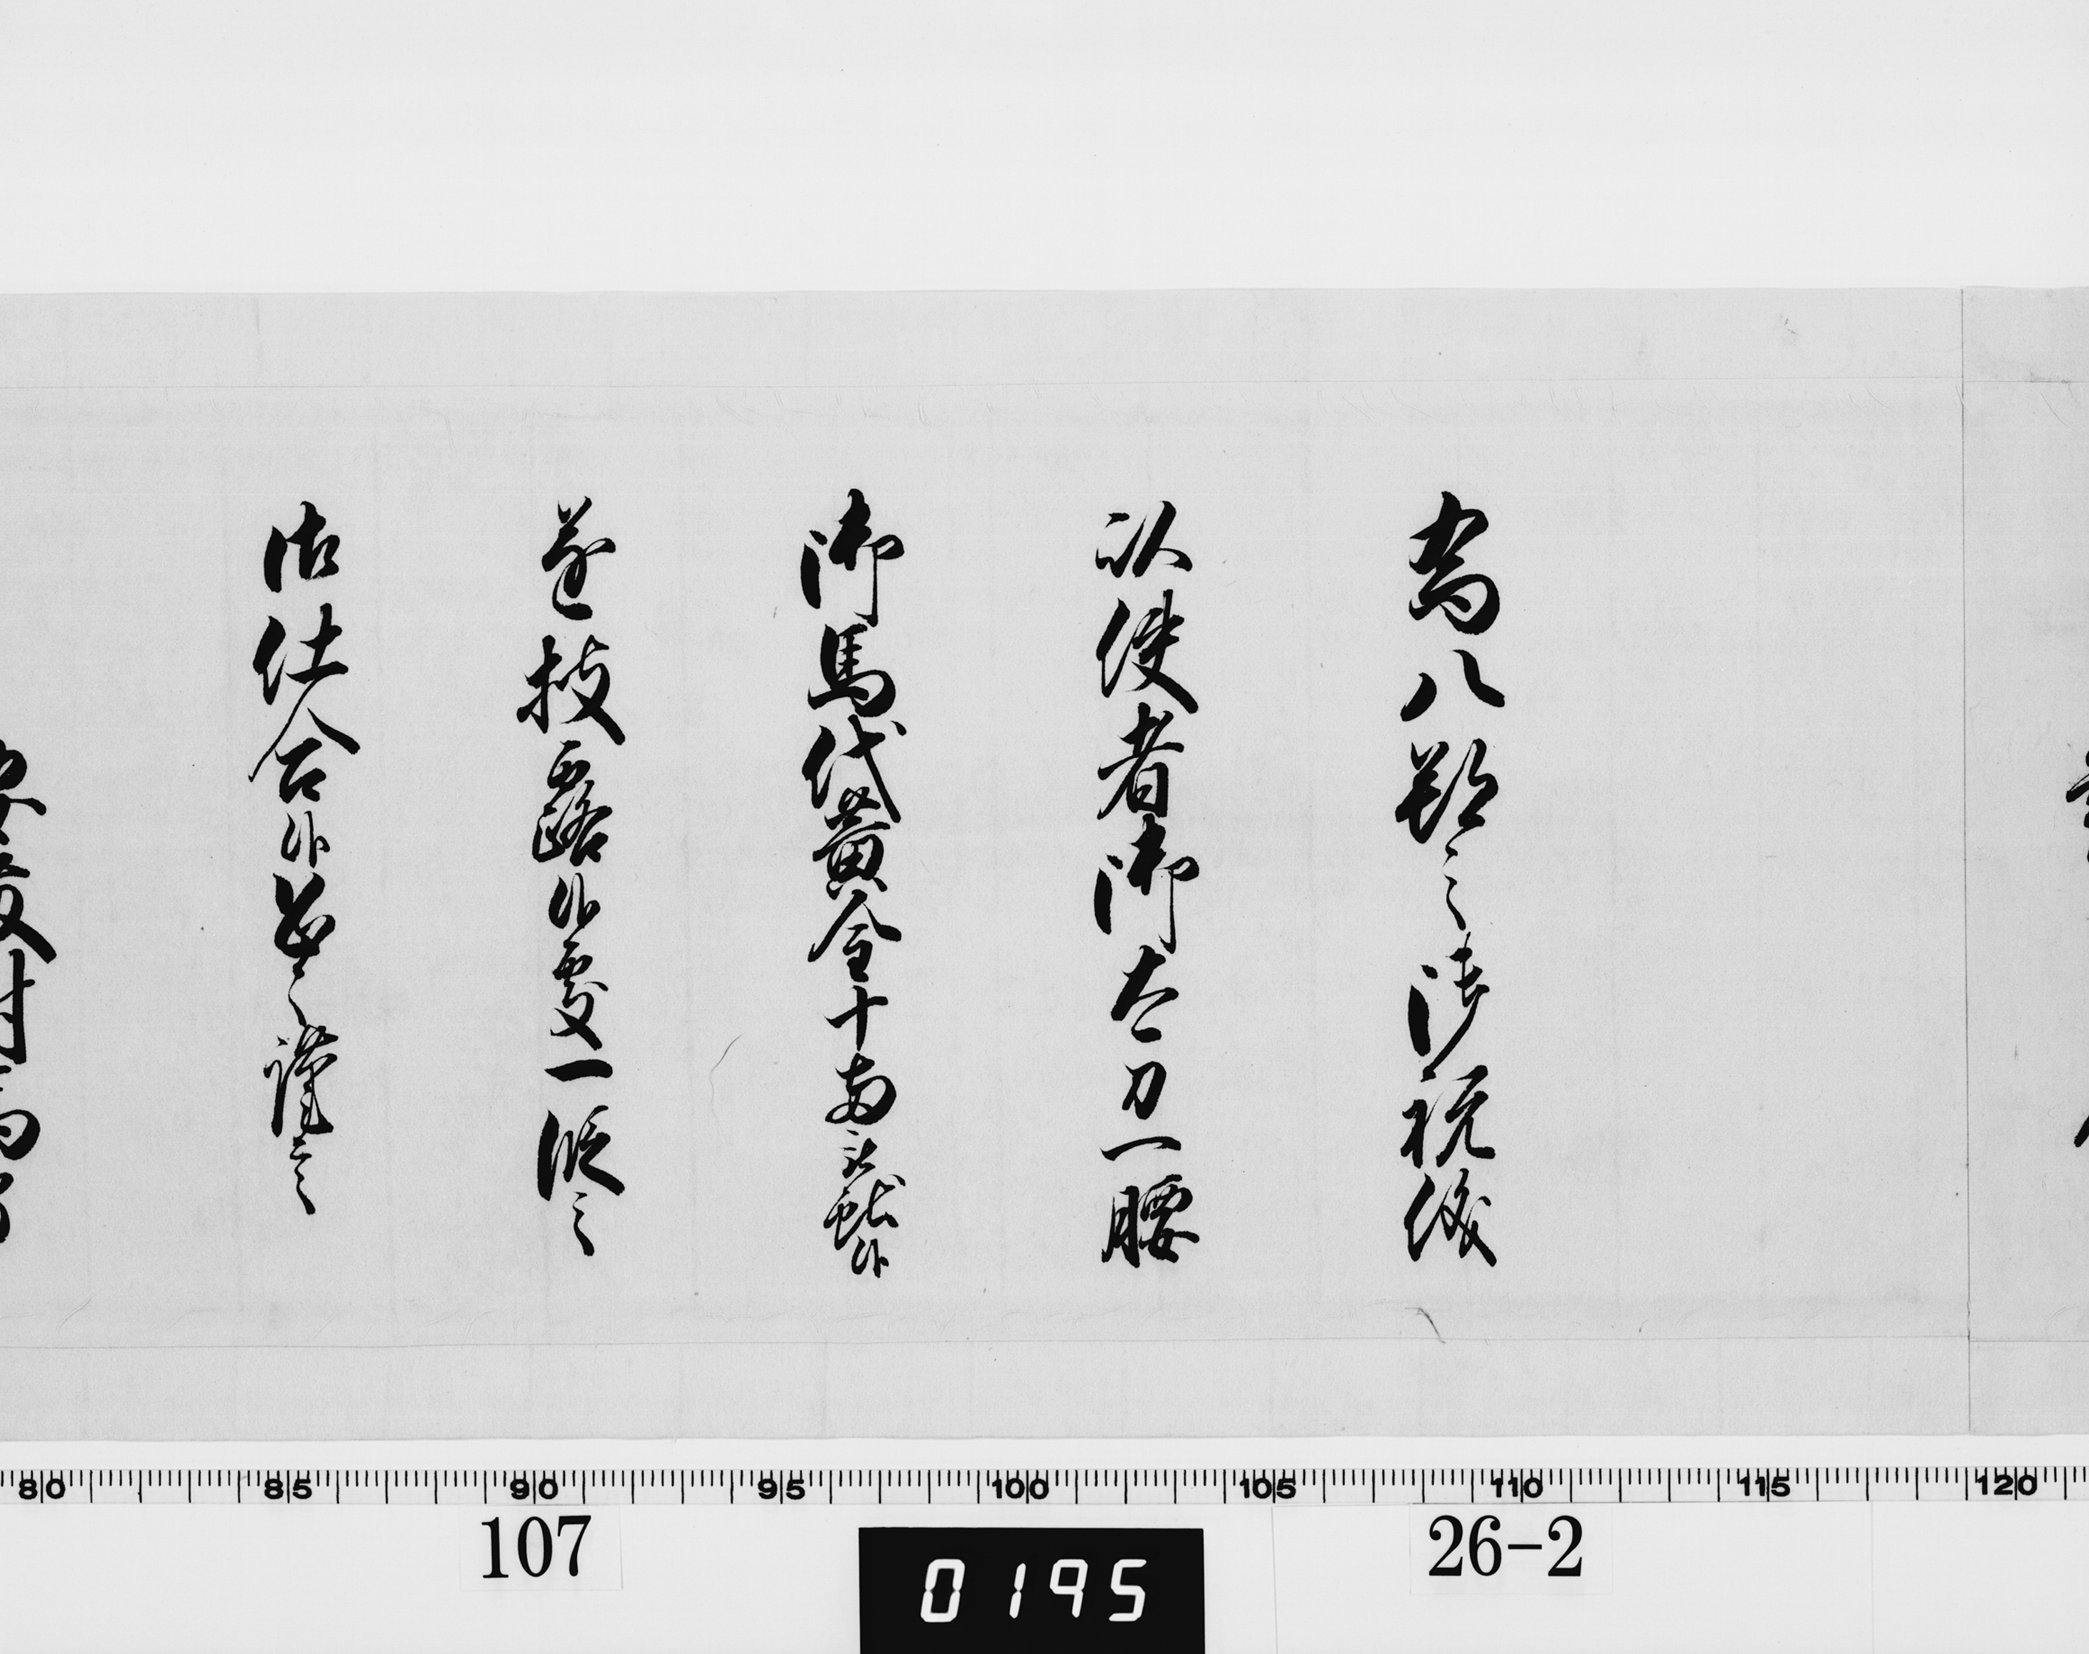 為八朔之御祝儀
以使者御太刀一腰
御馬代黄金十両被献候
遂披露候處一段之
御仕合候恐々謹言
80 85 90 95 100 105 110 115 120
107 26-2
0195